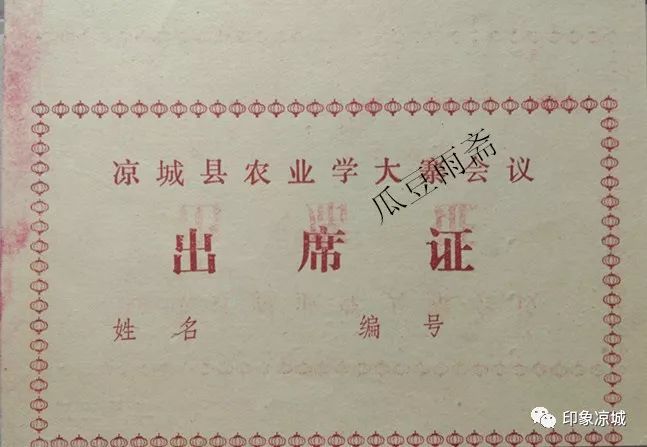 凉城县农业学大寨会议
瓜豆雨斋
出席证
姓名 编号
印象凉城